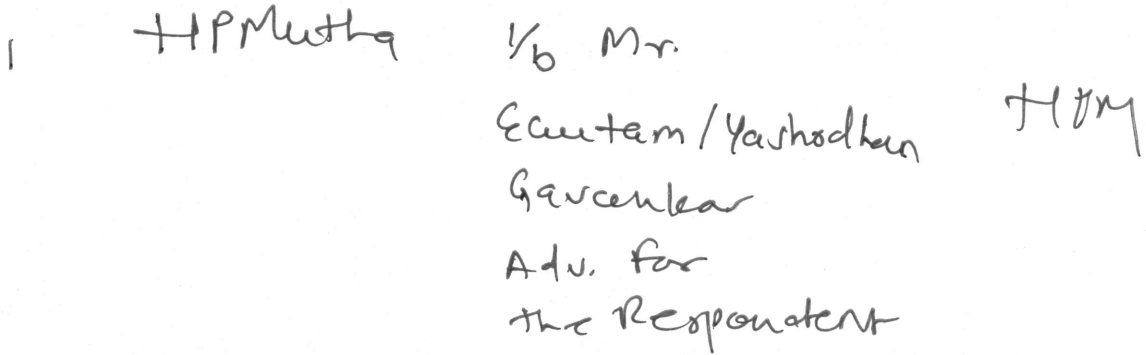 1 HPMutha i/b Mr.
Gautam/Yashodhan
Gavcenkar
Adv. for
the Respondent